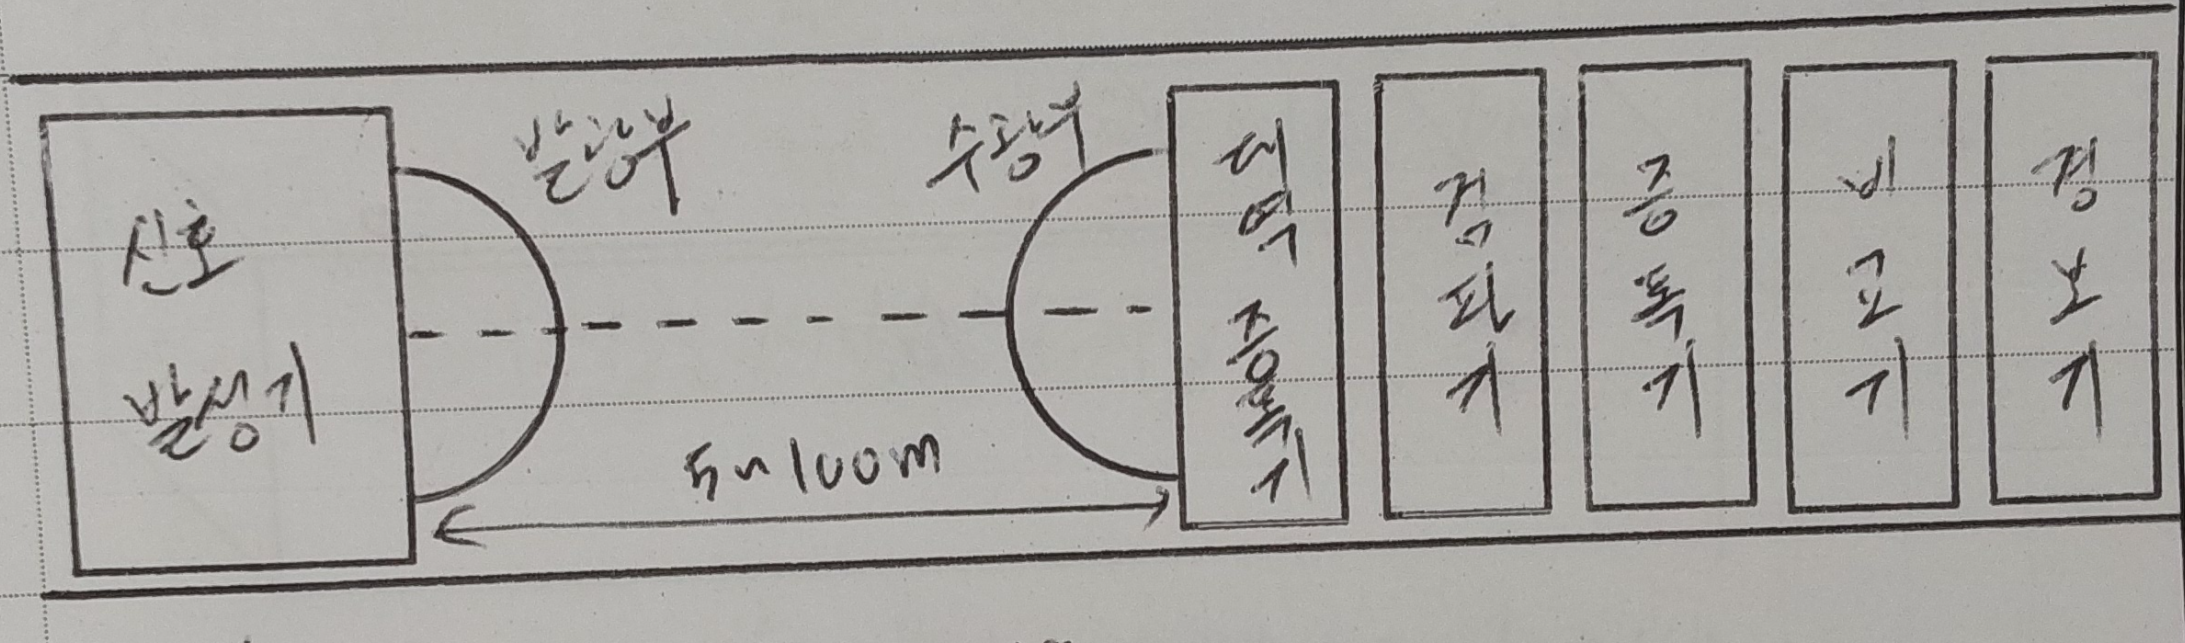 신호
발성기
발광부
수광부
5~100m
대역 증폭기
검파기
증폭기
비교기
경보기